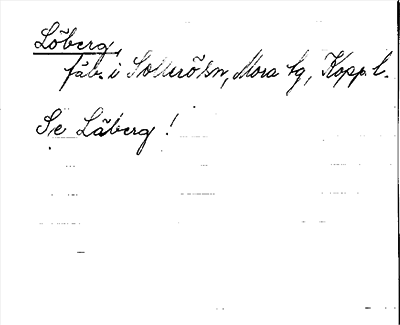 Löberg,
fäb. i Sollerö sn, Mora tg, Kopp. l.
Se Låberg!